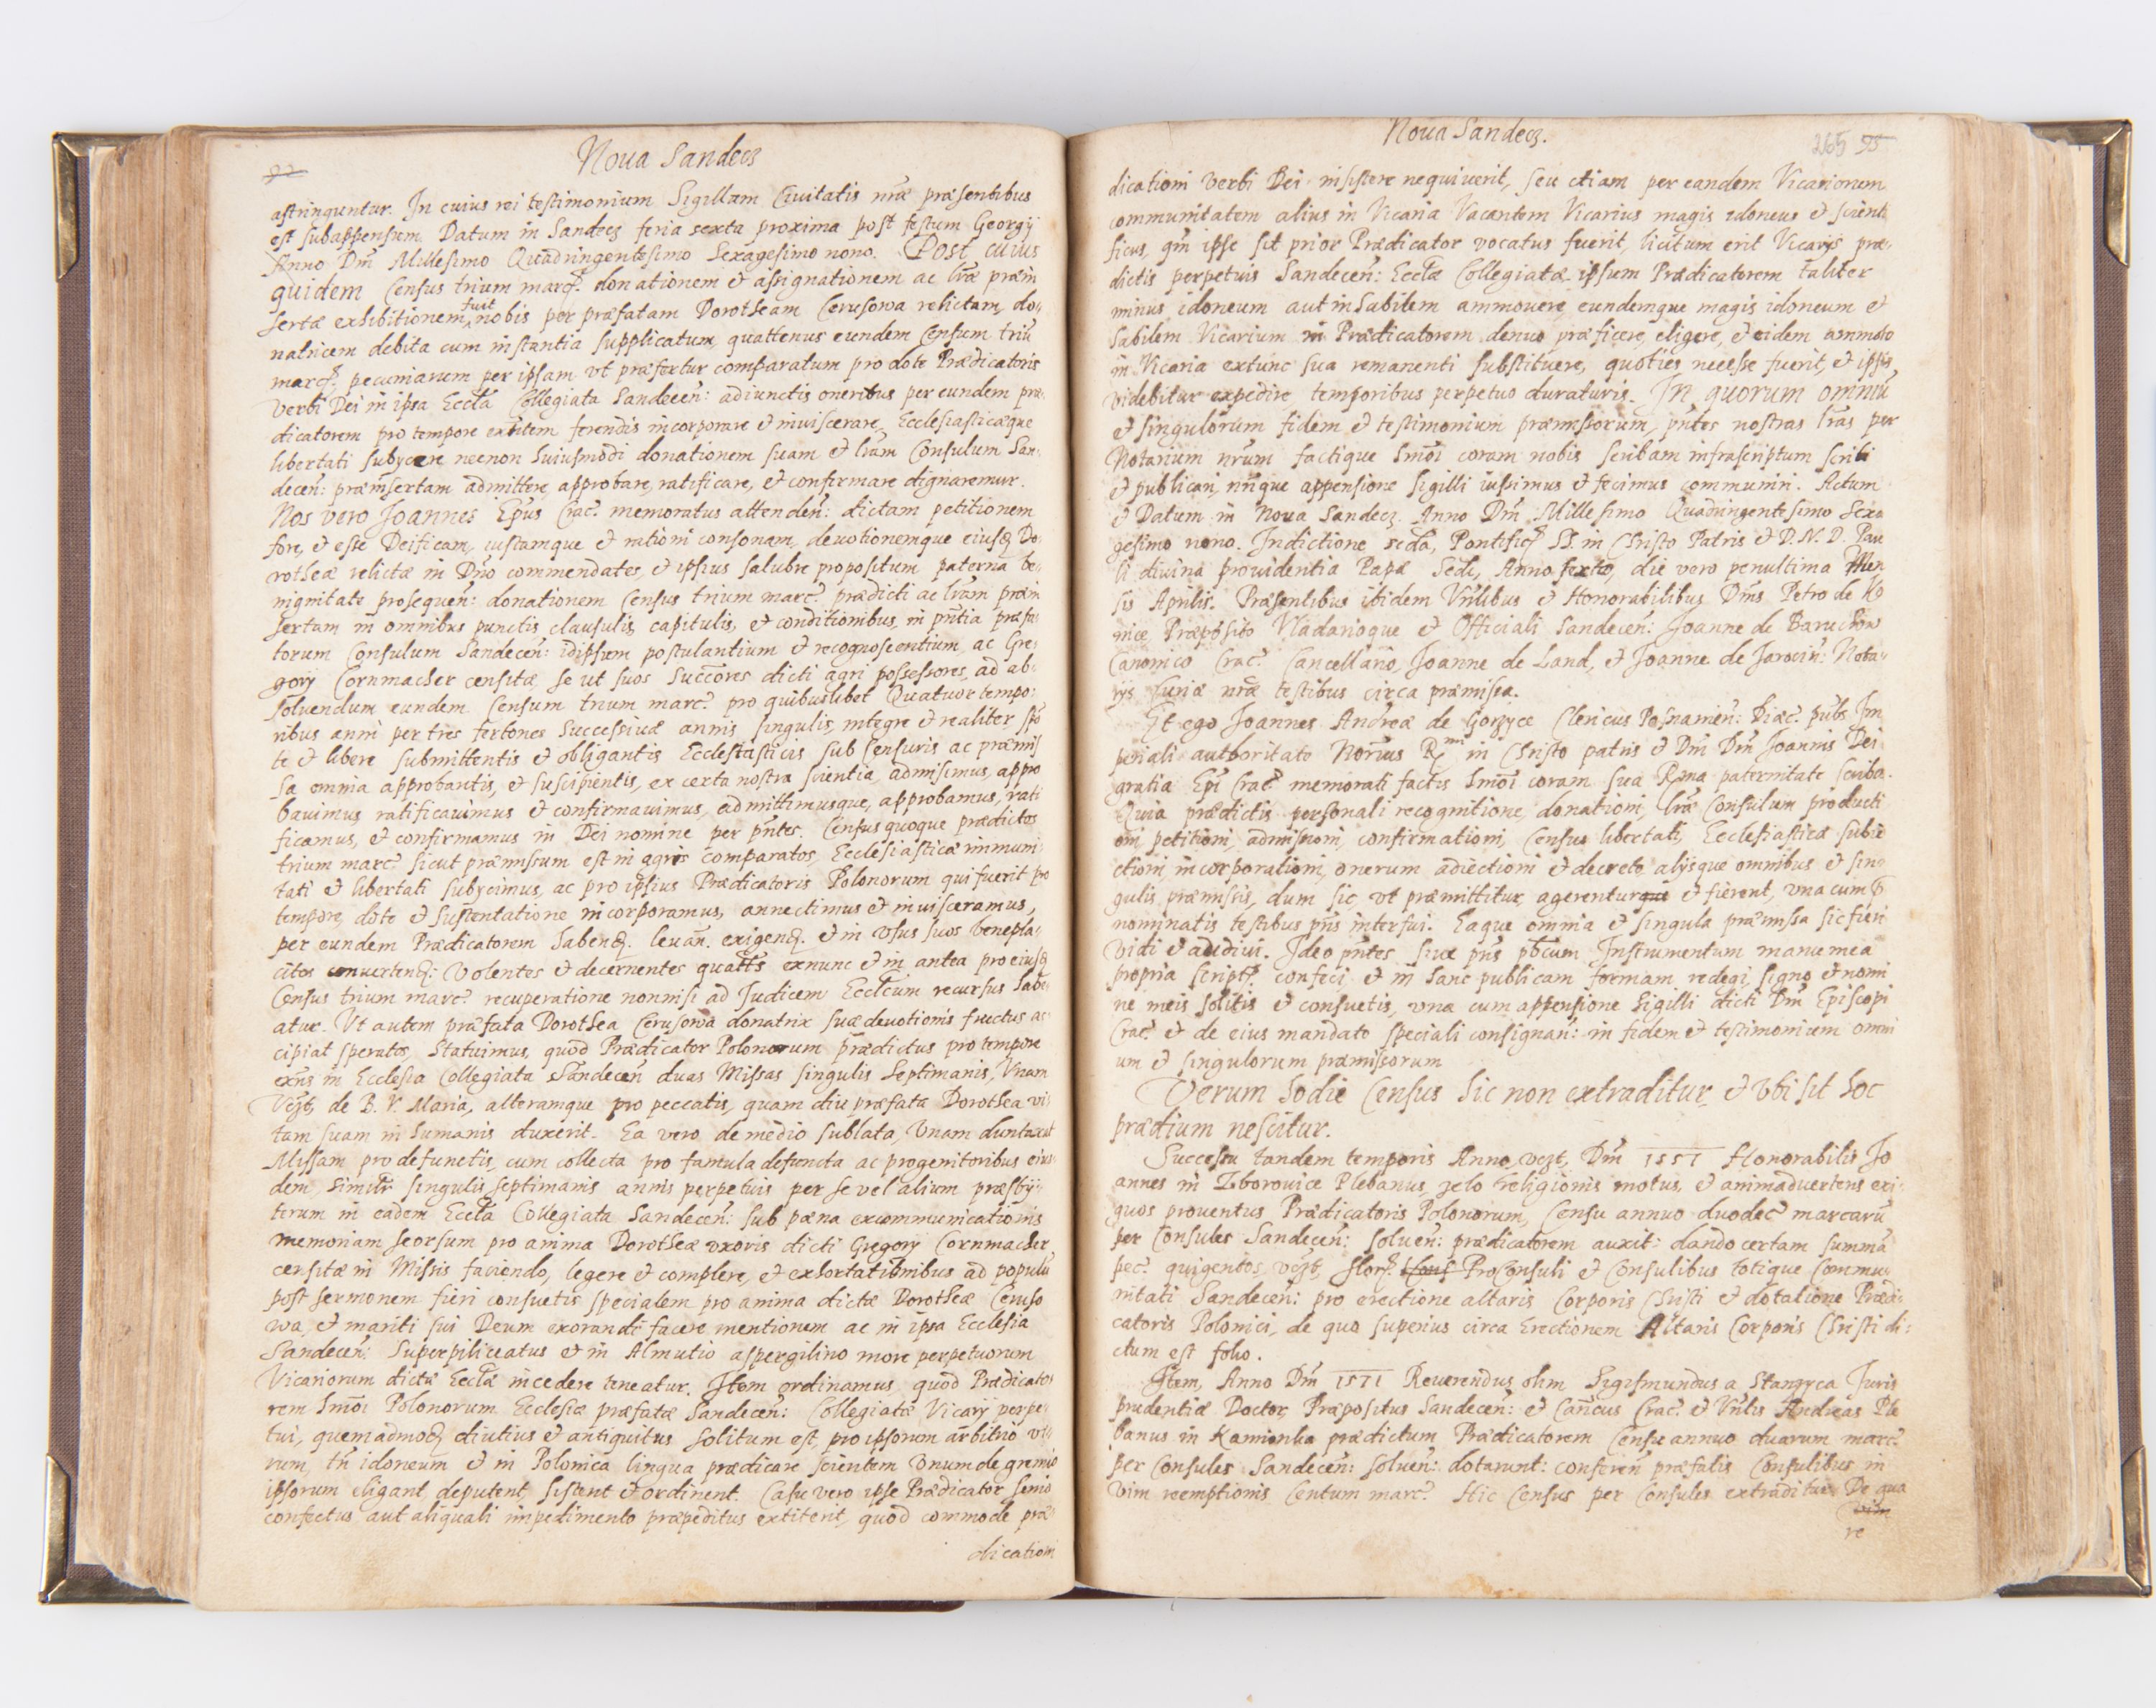 Noua Sandecz
92
astringuntur. In cuius rei testimonium Sigillum Ciuitatis nr̃æ præsentibus
est subappensum. Datum in Sandecz feria sexta proxima post festum Georgÿ
Anno Dn̄i Millesimo Quadringentesimo Sexagesimo nono. Post cuius
quidem Census trium marc̃. donationem et assignationem ac lr̃æ præin
sertæ exhibitionem fuit nobis per præfatam Dorotheam Cerusowa relictam, do:
natricem debita cum instantia supplicatum, quattenus eundem Censum triũ
marc̃. pecuniarum per ipsam vt præfertur comparatum pro dote Prædicatoris
verbi Dei in ipsa Eccl̃a Collegiata Sandeceñ: adiunctis oneribus per eundem præ:
dicatorem pro tempore exñtem ferendis incorporare et inuiscerare, Ecclesiasticæque
libertati subÿcere necnon huiusmodi donationem suam et lr̃am Consulum San:
deceñ: præinsertam admittere, approbare, ratificare, et confirmare dignaremur.
Nos vero Joannes Ep̃us Crac̃. memoratus attendeñ: dictam petitionem
fore, et esse Deificam, iustamque et rationi consonam, deuotionemque eiusđ Do:
rotheæ relictæ in Dn̄o commendates, et ipsius salubre propositum paterna be:
nignitate prosequeñ: donationem Census trium marc̃. prædicti ac lr̃am præin
sertam in omnibus punctis clausulis, capitulis, et conditionibus, in pñtia præfa:
torum Consulum Sandeceñ: idipsum postulantium et recognoscentium, ac Gre:
gorÿ Cornmacher censitæ, se ut suos Succõres dicti agri possessores, ad ab:
soluendum eundem Censum trium marc̃. pro quibuslibet Quatuor tempo:
ribus anni per tres fertones successiuæ annis singulis, integre et realiter, spõ
te et libere submittentis et obligantis Ecclesiasticis sub Censuris ac præmis
sa omnia approbantis, et suscipientis, ex certa nostra scientia, admisimus, appro
bauimus ratificauimus et confirmauimus, admittimusque, approbamus, rati
ficamus, et confirmamus in Dei nomine per pñtes. Census quoque prædictos
trium marc̃. sicut præmissum est in agris comparatos, Ecclesiasticæ immuni:
tati et libertati subÿcimus, ac pro ipsius Prædicatoris Polonorum qui fuerit pro
tempore, dote et sustentatione incorporamus, annectimus et inuisceramus,
per eundem Prædicatorem habenđ. leuañ. exigenđ. et in vsus suos benepla:
citos conuertenđ: Volentes et decernentes quatt̃s exnunc et in antea pro eiusđ
Census trium marc̃. recuperatione nonnisi ad Judicem Eccl̃cum recursus habe:
atur. Vt autem præfata Dorothea Cerusowa donatrix suæ deuotionis fructus ac
cipiat speratos, Statuimus, quod Prædicator Polonorum prædictus pro tempore
exñs in Ecclesia Collegiata Sandeceñ duas Missas singulis Septimanis, Vnam
vczt. de B. V. Maria, alteramque pro peccatis, quam diu præfata Dorothea vi:
tam suam in humanis duxerit. Ea vero de medio sublata, Vnam duntaxat
Missam pro defunctis, cum collecta pro famula defuncta ac progenitoribus eius
dem, similr̃ singulis septimanis annis perpetuis per se vel alium præsbÿ:
terum in eadem Eccl̃a Collegiata Sandeceñ: sub pæna excommunicationis
memoriam seorsum pro anima Dorotheæ vxoris dicti Gregorÿ Cornmacher
censitæ in Missis faciendo, legere et complere, et exhortationibus ad populũ
post sermonem fieri consuetis specialem pro anima dictæ Dorotheæ Ceruso
wa, et mariti sui Deum exorandi facere mentionem ac in ipsa Ecclesia
Sandeceñ: Superpiliceatus et in Almutio aspergilino more perpetuorum
Vicariorum dictæ Eccl̃æ incedere teneatur. Item ordinamus, quod Prædicato
rem hm̃oi Polonorum Ecclesiæ præfatæ Sandeceñ: Collegiatæ Vicarÿ perpe:
tui, quemadmođ diutius et antiquitus solitum est, pro ipsorum arbitrio vi:
rum, tñ idoneum et in Polonica lingua prædicare scientem Vnum de gremio
ipsorum eligant, deputent, sistent et ordinent. Casu vero ipse Prædicator senio
confectus, aut aliquali impedimento præpeditus extiterit, quod commode præ:
dicationi
Noua Sandecz.
265 95
dicationi verbi Dei insistere nequiuerit, seu etiam per eandem Vicariorum
communitatem alius in Vicaria Vacantem Vicarius magis idoneus et scienti
ficus, qm̃ ipse sit prior Prædicator vocatus fuerit, licitum erit Vicarÿs præ:
dictis perpetuis Sandeceñ: Eccl̃æ Collegiatæ, ipsum Prædicatorem taliter
minus idoneum aut inhabilem ammouere, eundemque magis idoneum et
habilem Vicarium in Prædicatorem denuo præficere, eligere, et eidem ammoto
in Vicaria extunc sua remanenti substituere, quoties necesse fuerit, et ipsis
videbitur expedire, temporibus perpetuo duraturis. In quorum omniũ
et singulorum fidem et testimonium præmissorum, pñtes nostras lr̃as per
Notarium nr̃um factique hm̃oi coram nobis scribam infrascriptum scribi
et publicari, nr̃ique appensione sigilli iussimus et fecimus communiri. Actum
et Datum in Noua Sandecz. Anno Dn̄i Millesimo Quadringentesimo Sexa
gesimo nono. Indictione scđa, Pontific̃ SS. in Christo Patris et D. N. D. Pau
li diuina prouidentia Papæ Scđi, Anno sexto, die vero penultima Men
sis Aprilis. Præsentibus ibidem Vñlibus et Honorabilibus Dn̄is Petro de Ko
nice Præposito Vladarioque et Officiali Sandeceñ: Joanne de Baruchow
Canonico Crac̃. Cancellario, Joanne de Land, et Joanne de Jarociñ: Nota:
rÿs Curiæ nr̃æ testibus circa præmissa.
Et ego Joannes Andreæ de Gorzyce Clericus Posnanieñ: Diæc̃. pub̃s Im
periali authoritate Nor̃ius Rmi in Christo patris et Dn̄i Dn̄i Joannis Dei
gratia Ep̃i Crac̃. memorati factis hm̃oi coram sua Rma paternitate scriba.
Quia prædictis personali recognitione, donationi, lr̃æ Consulum producti
oni petitioni, admissioni, confirmationi, Census libertati, Ecclesiasticæ subie
ctioni, incorporationi, onerum adiectioni et decreto, alÿsque omnibus et sin:
gulis præmissis, dum sic, vt præmittitur, agerentur et fierent, vna cum
nominatis testibus pñs interfui. Eaque omnia et singula præmissa sic fieri
vidi et audiui. Ideo pñtes siue pñs pb̃cum Instrumentum manu mea
propria script̃. confeci et in hanc publicam formam redegi, signo et nomi
ne meis solitis et consuetis, vna cum appensione Sigilli dicti Dn̄i Episcopi
Crac̃. et de eius mandato speciali consignañ: in fidem et testimonium omni
um et singulorum præmissorum
Verum hodie Census hic non extraditur, et vbi sit hoc
prædium nescitur.
Successu tandem temporis Anno, vczt, Dn̄i 1551 Honorabilis Jo
annes in Zborowice Plebanus, zelo religionis motus, et animaduertens exi:
guos prouentus Prædicatoris Polonorum, Censu annuo duodec̃ marcarũ
per Consules Sandeceñ: solueñ: prædicatorem auxit: dando certam summã
pec̃. quigentos, vczt, flor̃. ProConsuli et Consulibus totique Commu:
nitati Sandeceñ: pro erectione altaris Corporis Christi et dotatione Prædi:
catoris Polonici, de quo superius circa Erectionem Altaris Corporis Christi di:
ctum est folio.
Item, Anno Dn̄i 1571 Reuerendus olim Sigismundus a Stanzyca Juris
prudentiæ Doctor, Præpositus Sandeceñ: et Cañcus Crac̃. et Vñlis Andreas Ple
banus in Kamionka prædictum Prædicatorem Censu annuo duarum marc̃.
per Consules Sandeceñ: solueñ: dotarunt: confereñ præfatis Consulibus in
vim reemptionis Centum marc̃. Hic Census per Consules extraditur. De qua
re